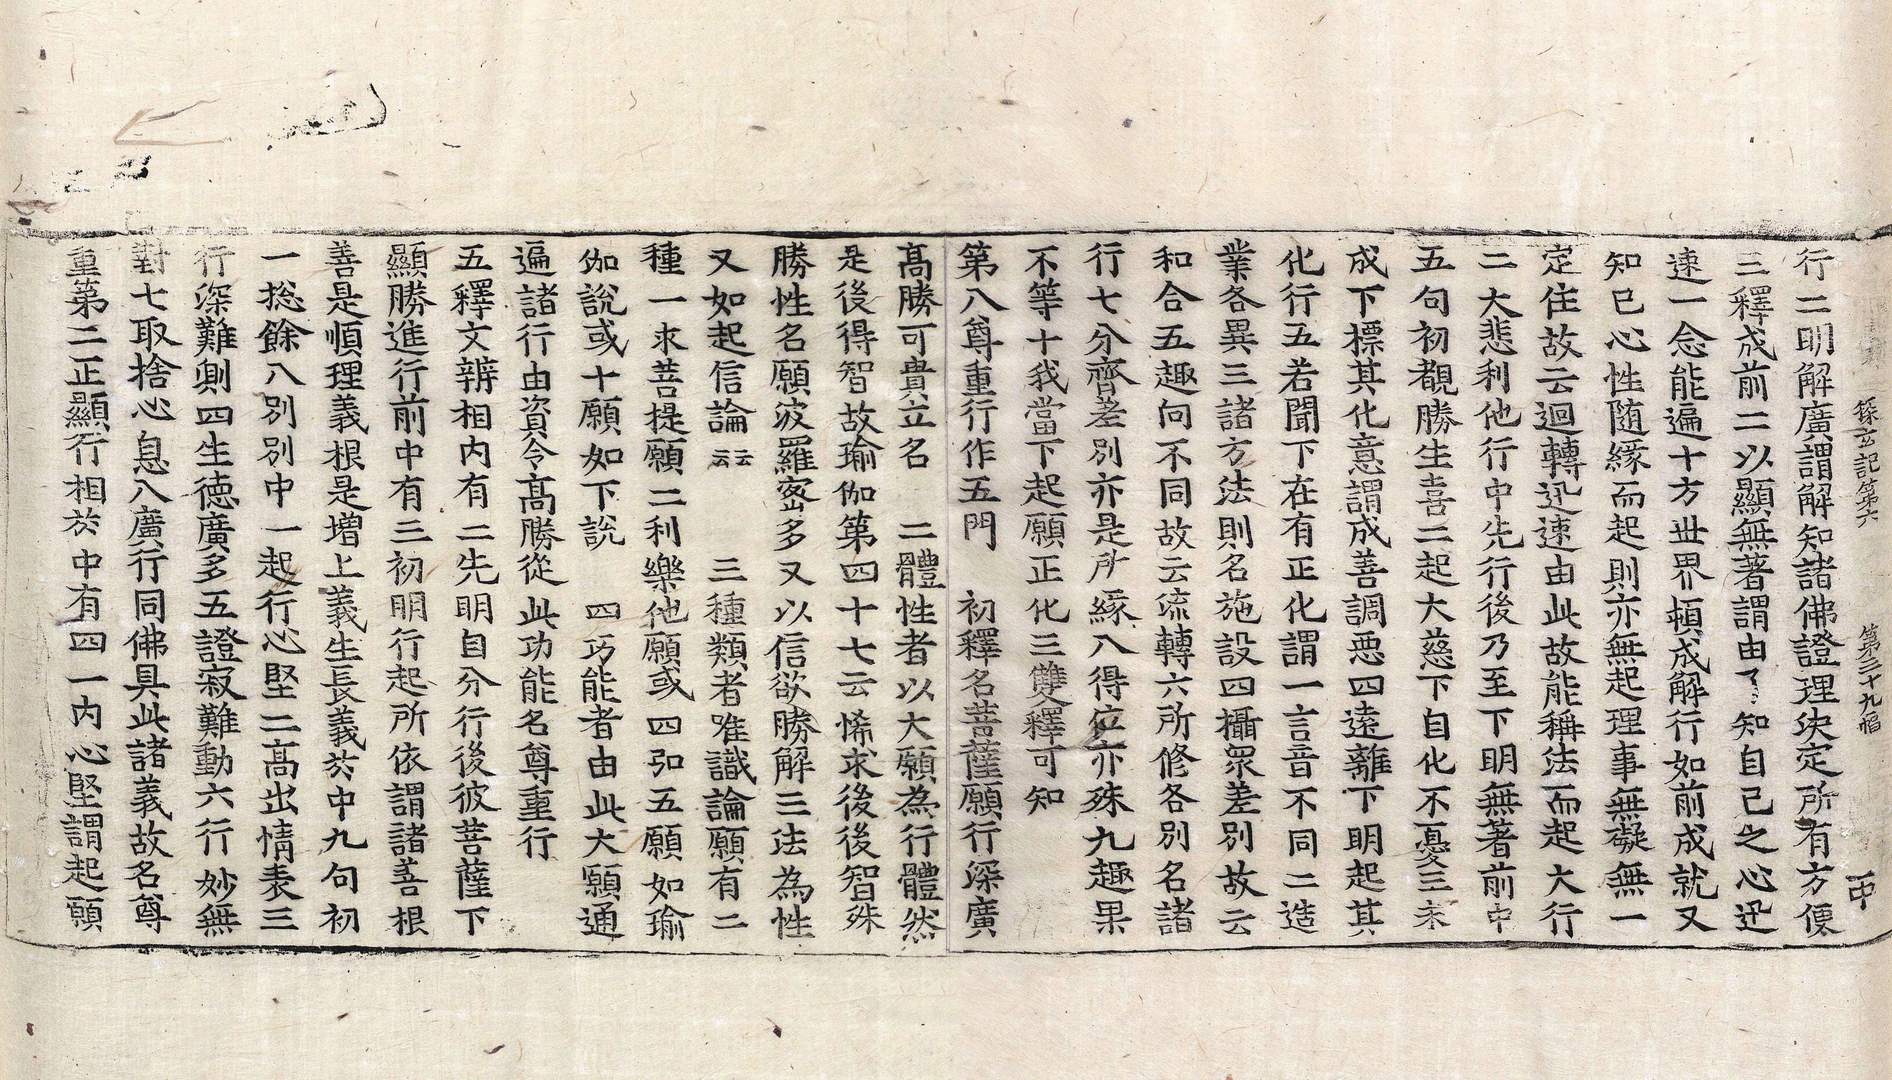 探玄記第六　第三十九幅　中
行二明解廣謂解知諸佛證理決定所有方便
三釋成前二以顯無著謂由了知自己之心迅
速一念能遍十方世界頓成解行如前成就又
知已心性随緣而起則亦無起理事無礙無一
定住故云迴轉迅速由此故能稱法而起大行
二大悲利他行中先行後乃至下明無著前中
五句初覩勝生喜二起大慈下自化不憂三未
成下標其化意謂成善調惡四遠離下明起其
化行五若聞下在有正化謂一言音不同二造
業各異三諸方法則名施設四攝衆差別故云
和合五趣向不同故云流轉六所修各別名諸
行七分齊差別亦是所緣八得位亦殊九趣果
不等十我當下起願正化三雙釋可知
第八尊重行作五門　初釋名菩薩願行深廣
髙勝可貴立名　二體性者以大願為行體然
是後得智故瑜伽第四十七云悕求後後智殊
勝性名願波羅宻多又以信欲勝解三法為性
又如起信論云云　三種類者唯識論願有二
種一求菩提願二利樂他願或四弘五願如瑜
伽說或十願如下說　四功能者由此大願通
遍諸行由資令髙勝從此功能名尊重行
五釋文辨相内有二先明自分行後彼菩薩下
顯勝進行前中有三初明行起所依謂諸善根
善是順理義根是增上義生長義於中九句初
一捴餘八別別中一起行心堅二髙出情表三
行深難測四生徳廣多五證寂難動六行妙無
對七取捨心息八廣行同佛具此諸義故名尊
重第二正顯行相於中有四一内心堅謂起願